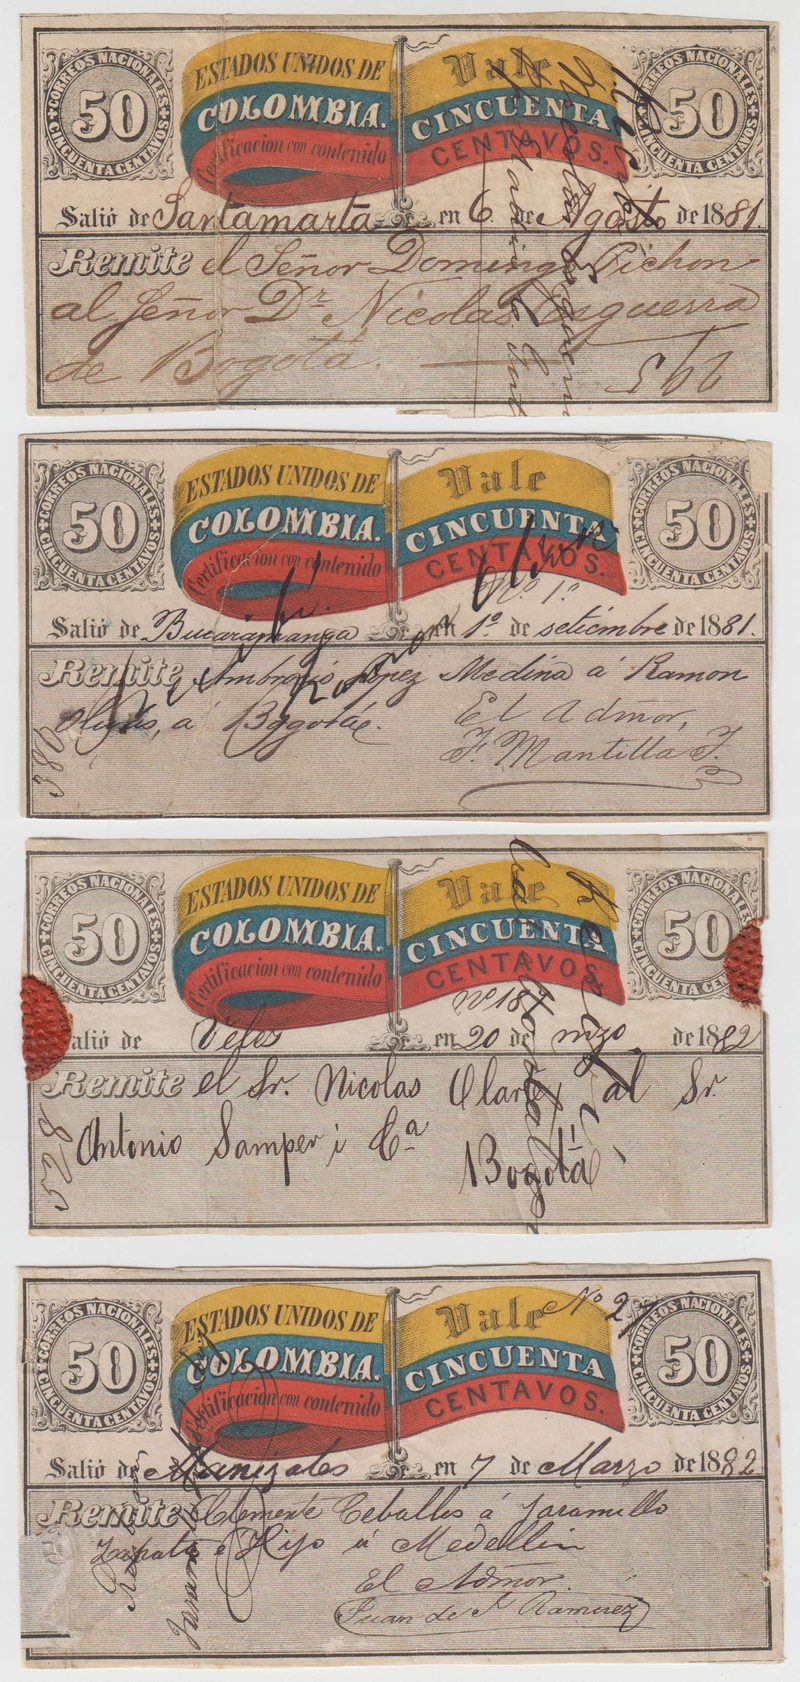 CORREOS NACIONALES
50
CINCUENTA CENTAVOS
ESTADOS UNIDOS DE
COLOMBIA.
Certificacion con contenido
Vale
CINCUENTA
CENTAVOS.
CORREOS NACIONALES
50
CINCUENTA CENTAVOS
Salió de Santamarta en 6 de Agosto de 1881.
Remite el Señor Domingo Pichon
al Señor Dr Nicolas Esguerra
de Bogotá.
Recibí
Nicolas Esguerra
CORREOS NACIONALES
50
CINCUENTA CENTAVOS
ESTADOS UNIDOS DE
COLOMBIA.
Certificacion con contenido
Vale
CINCUENTA
CENTAVOS.
CORREOS NACIONALES
50
CINCUENTA CENTAVOS
No. 1º
Salió de Bucaramanga en 1º de setiembre de 1881.
Remite Ambrosio Lopez Medina á Ramon
á Bogotá.
El Admor,
F. Mantilla F.
Recibí.
Ramon
CORREOS NACIONALES
50
CINCUENTA CENTAVOS
ESTADOS UNIDOS DE
COLOMBIA.
Certificacion con contenido
Vale
CINCUENTA
CENTAVOS.
CORREOS NACIONALES
50
CINCUENTA CENTAVOS
No 187
alió de Veles en 20 de mzo de 1882
Remite el Sr. Nicolas Olarte al Sr.
Antonio Samper i Ca
Bogotá
825
Recibí
CORREOS NACIONALES
50
CINCUENTA CENTAVOS
ESTADOS UNIDOS DE
COLOMBIA.
Certificacion con contenido
Vale
CINCUENTA
CENTAVOS.
No 27
CORREOS NACIONALES
50
CINCUENTA CENTAVOS
Salió de Manizales en 7 de Marzo de 1882
Remite Clemente Ceballos á Jaramillo
Zapata é Hijo á Medellin
El Admor.
Juan de J. Ramirez